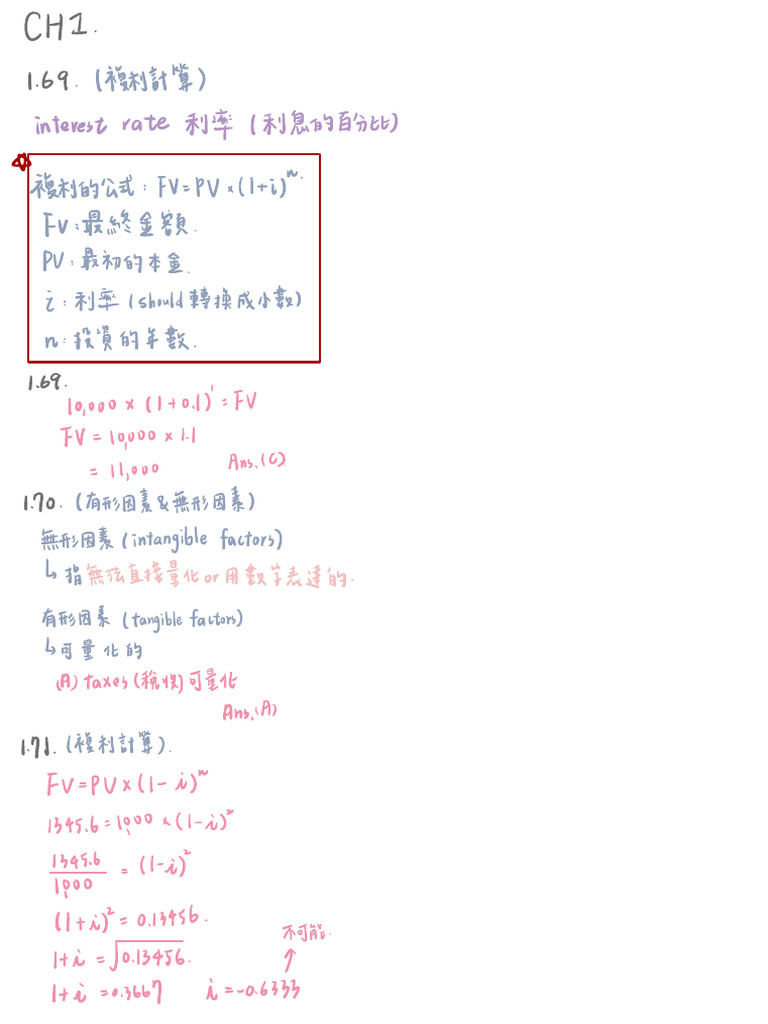 CH1.
1.69. (複利計算)
interest rate 利率 (利息的百分比)
複利的公式: FV=PV×(1+i)^n.
FV:最終金額.
PV:最初的本金.
i:利率 (should 轉換成小數)
n:投資的年數.
1.69.
10,000 × (1+0.1)^1 = FV
FV = 10,000 × 1.1
= 11,000 Ans.(C)
1.70. (有形因素&無形因素)
無形因素 (intangible factors)
↳ 指無法直接量化or用數字表達的.
有形因素 (tangible factors)
↳可量化的
(A) taxes (稅收) 可量化
Ans.(A)
1.71. (複利計算).
FV=PV×(1-i)^n
1345.6=1,000 ×(1-i)^2
1345.6/1,000 = (1-i)^2
(1+i)^2 = 0.13456.
不可能.
1+i = √0.13456.
1+i =0.3667 i=-0.6333